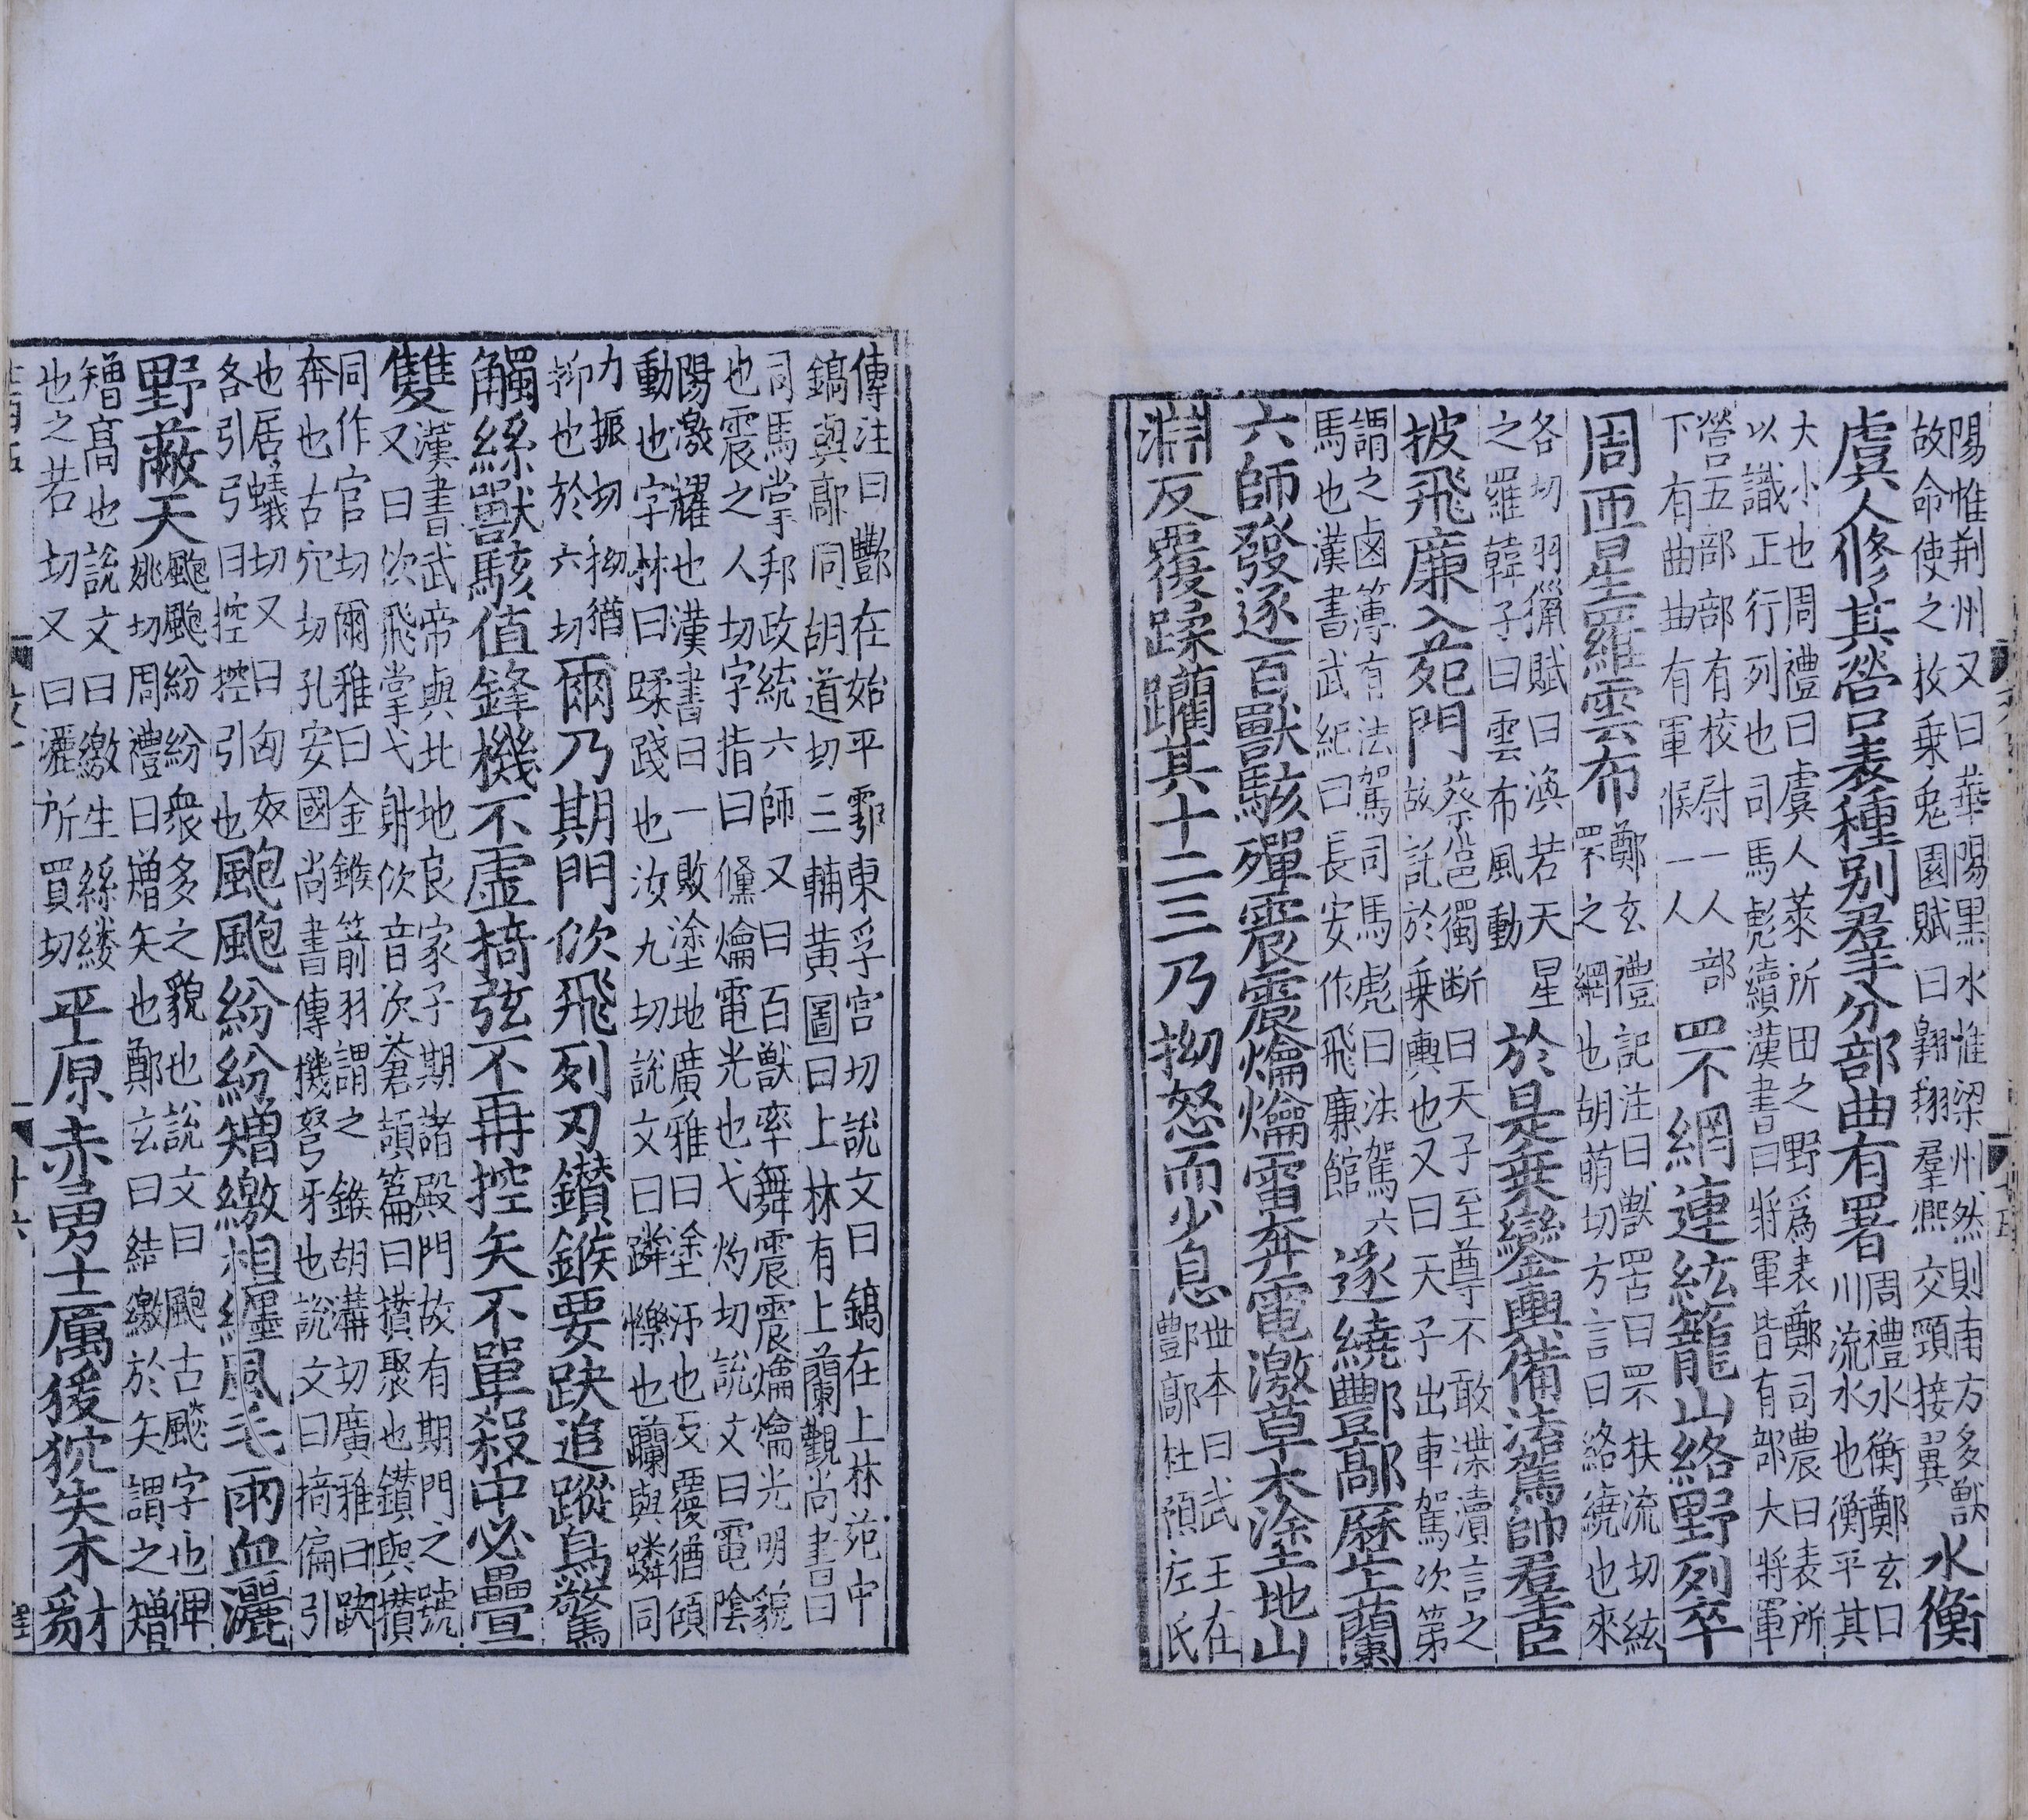 陽惟荆州又曰華陽黑水惟梁州然則南方多獸
故命使之枚乗兔園賦曰翱翔羣熈交頸接翼
水衡
虞人修其營表種别羣分部曲有署
周禮水衡鄭玄曰
川流水也衡平其
大小也周禮曰虞人萊所田之野爲表鄭司農曰表所
以識正行列也司馬彪續漢書曰將軍皆有部大將軍
營五部部有校尉一人部
下有曲曲有軍候一人
罘網連紘籠山絡野列卒
周匝星羅雲布
鄭玄禮記注曰獸罟曰罘扶流切紘
罘之網也胡萌切方言曰絡繞也來
各切羽獵賦曰渙若天星
之羅韓子曰雲布風動
於是乗鑾輿備法駕帥羣臣
披飛廉入苑門
蔡邕獨断曰天子至尊不敢渫瀆言之
故託於乗輿也又曰天子出車駕次第
謂之鹵簿有法駕司馬彪曰法駕六
馬也漢書武紀曰長安作飛廉館
遂繞酆鄗歴上蘭
六師發逐百獸駭殫震震爚爚雷奔電激草木塗地山
淵反覆蹂躪其十二三乃拗怒而少息
世本曰武王在
酆鄗杜預左氏
傳注曰酆在始平鄠東孚宫切說文曰鎬在上林苑中
鎬與鄗同胡道切三輔黄圖曰上林有上蘭觀尚書曰
司馬掌邦政統六師又曰百獸率舞震震爚爚光明貌
也震之人切字指曰儵爚電光也弋灼切說文曰電陰
陽激燿也漢書曰一敗塗地廣雅曰塗汙也反覆猶傾
動也字林曰蹂踐也汝九切說文曰蹸轢也躪與蹸同
力振切拗猶
抑也於六切
爾乃期門佽飛列刃鑚鍭要趹追蹤鳥驚
觸絲獸駭值鋒機不虚掎弦不再控矢不單殺中必疊
雙
漢書武帝與北地良家子期諸殿門故有期門之號
又曰佽飛掌弋射佽音次蒼頡篇曰攢聚也鑚與攢
同作官切爾雅曰金鍭箭羽謂之鍭胡溝切廣雅曰趹
奔也古穴切孔安國尚書傳機弩牙也說文曰掎偏引
也居蟻切又曰匈奴
各引弓曰控控引也
颮颮紛紛矰繳相纏風毛雨血灑
野蔽天
颮颮紛紛衆多之貌也說文曰颮古飈字也俾
姚切周禮曰矰矢也鄭玄曰結繳於矢謂之矰
矰高也說文曰繳生絲縷
也之若切又曰灑所買切
平原赤勇士厲猨狖失木豺